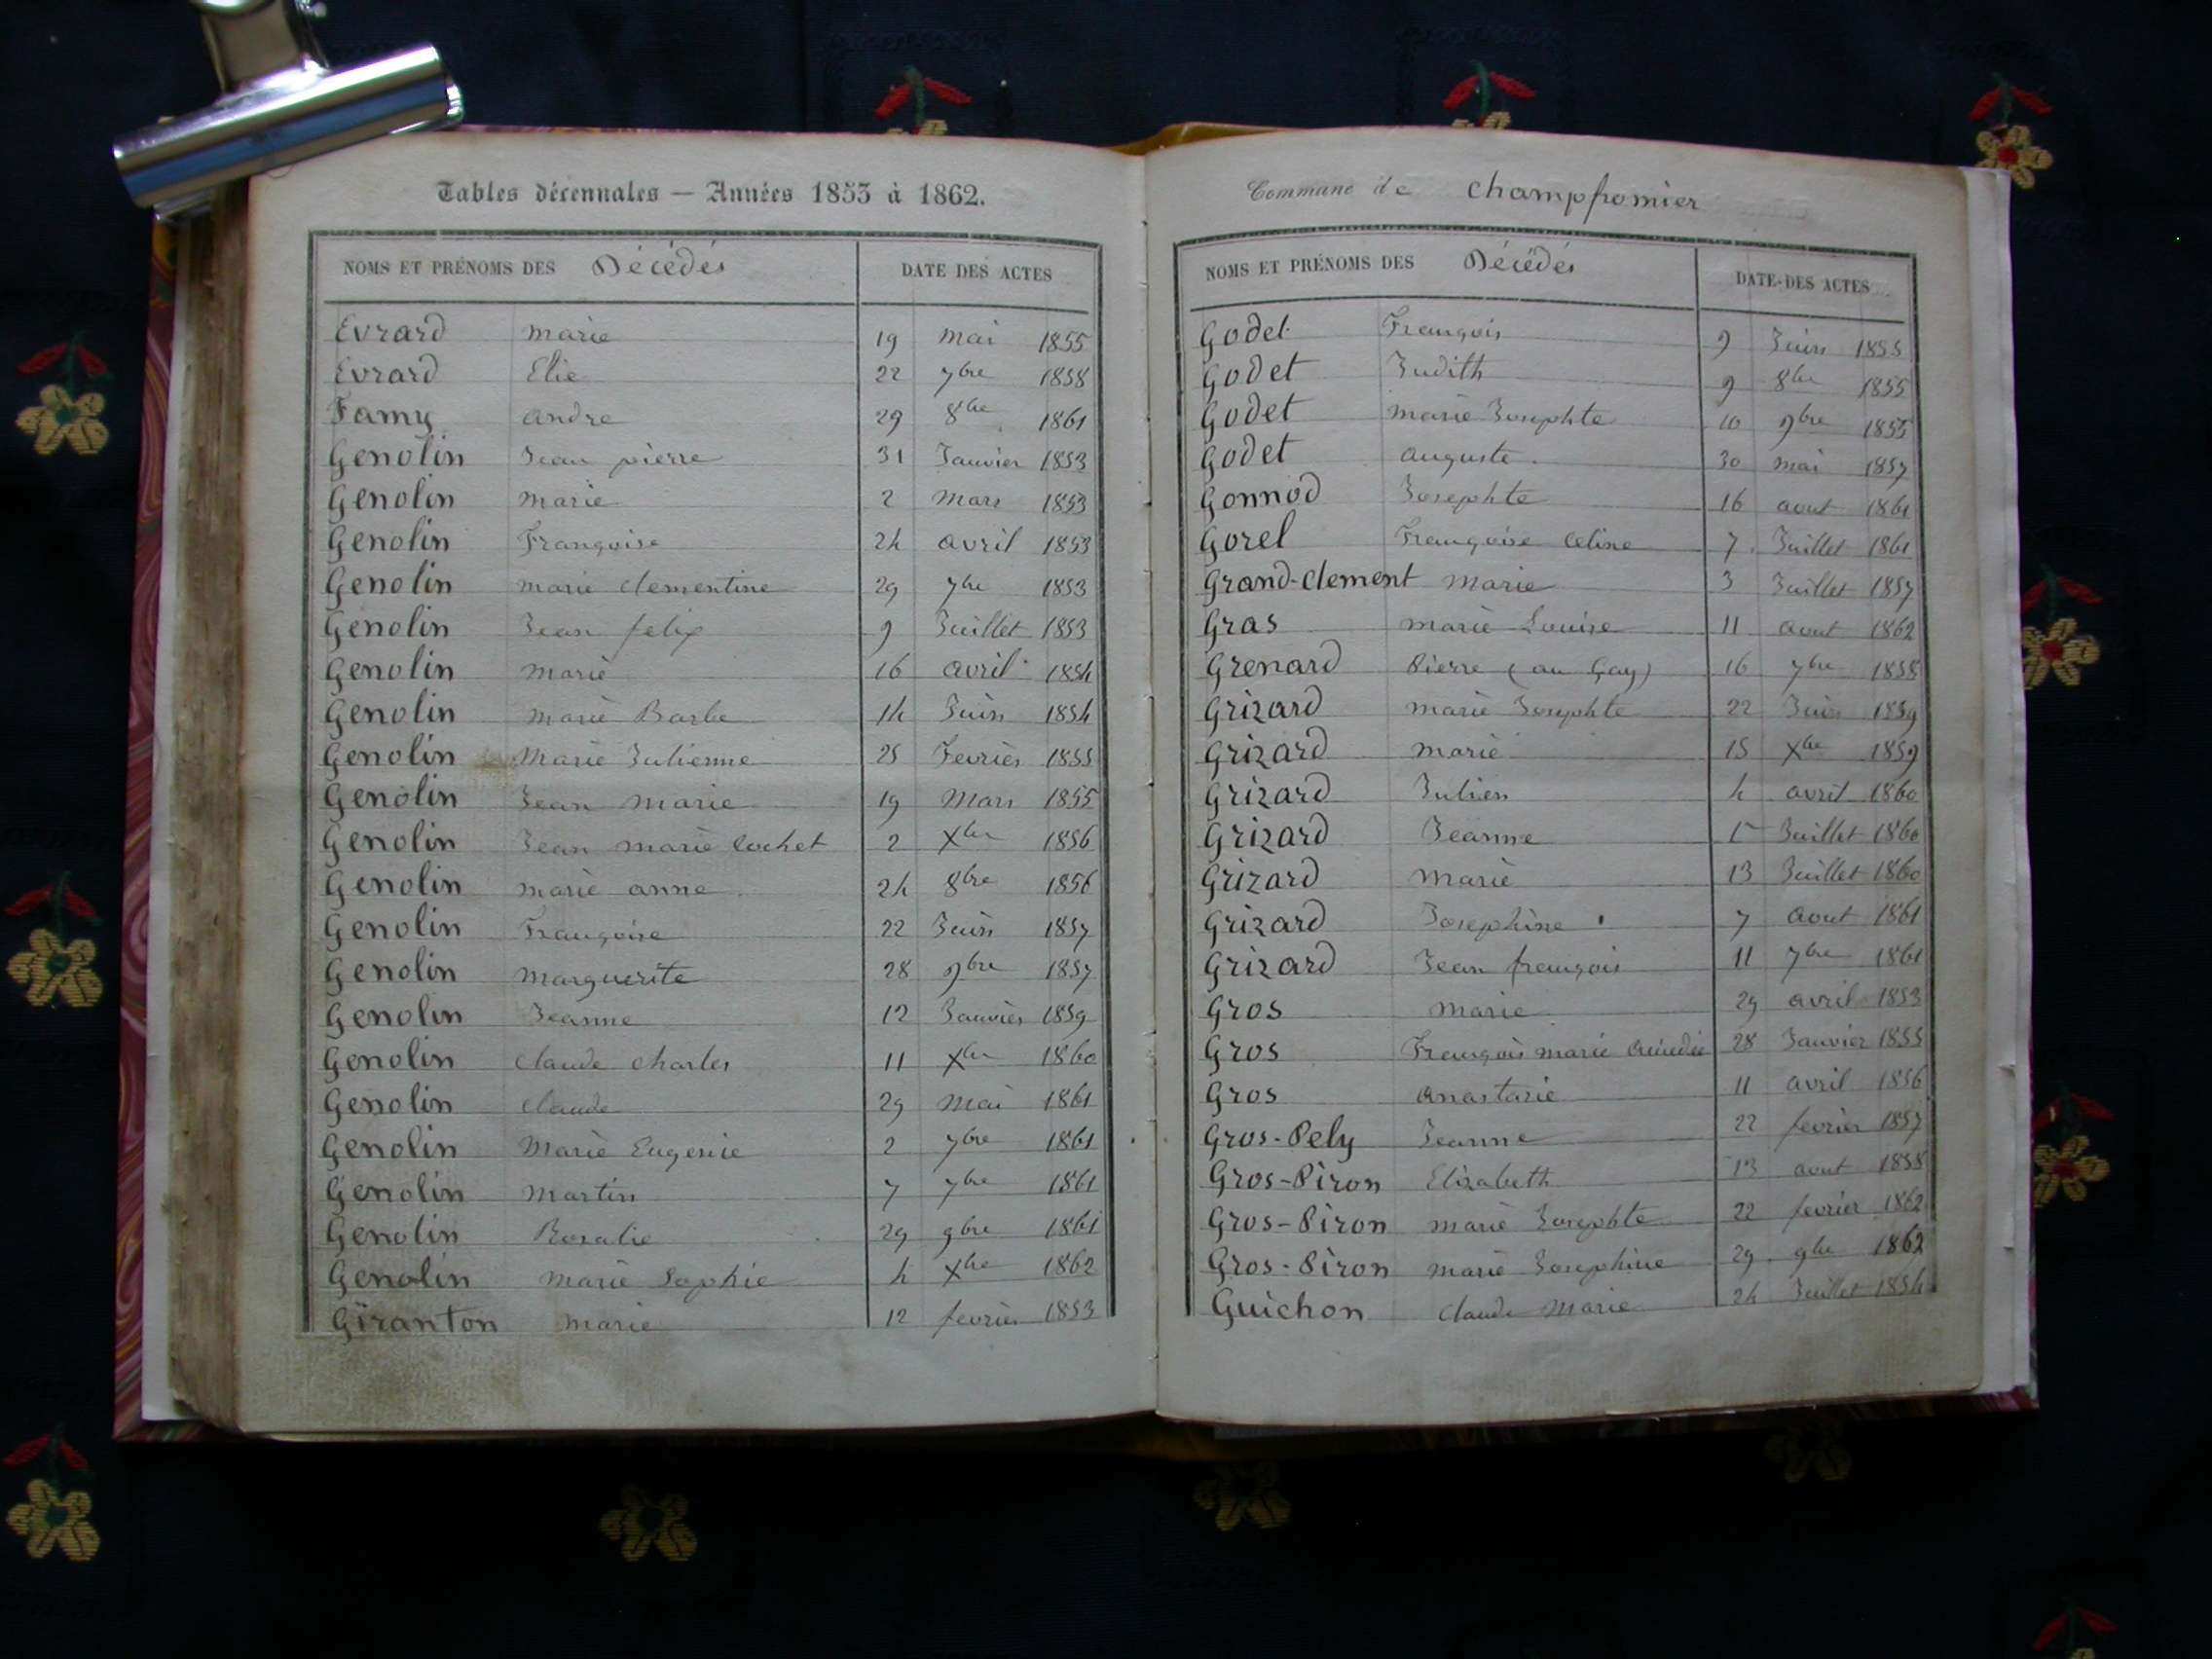 Tables décennales — Années 1853 à 1862.
NOMS ET PRÉNOMS DES Décédés DATE DES ACTES
Evrard marie 19 mai 1855
Evrard Elie 22 7bre 1858
Famy andre 29 8bre 1861
Genolin Jean pierre 31 Janvier 1853
Genolin marie 2 mars 1853
Genolin Françoise 24 avril 1853
Genolin marie clementine 29 7bre 1853
Genolin Jean felix 9 Juillet 1853
Genolin marie 16 avril 1854
Genolin marie Barbe 14 Juin 1854
Genolin Marie Julienne 25 Fevrier 1855
Genolin Jean marie 19 Mars 1855
Genolin Jean marie cochet 2 Xbre 1856
Genolin marie anne 24 8bre 1856
Genolin Françoise 22 Juin 1857
Genolin marguerite 28 9bre 1857
Genolin Jeanne 12 Janvier 1859
Genolin claude charles 11 Xbre 1860
Genolin claude 29 mai 1861
Genolin Marie Eugenie 2 7bre 1861
Genolin martin 7 7bre 1861
Genolin Rosalie 29 9bre 1861
Genolin marie Sophie 4 Xbre 1862
Giranton marie 12 fevrier 1853
Commune de champfromier
NOMS ET PRÉNOMS DES Décédés DATE DES ACTES
Godet François 9 Juin 1855
Godet Judith 9 8bre 1855
Godet marie Josephte 10 9bre 1855
Godet auguste 30 mai 1857
Gonnod Josephte 16 aout 1861
Gorel Françoise celine 7 Juillet 1861
Grand-clement Marie 3 Juillet 1857
Gras marie Louise 11 aout 1862
Grenard Pierre (au Gay) 16 7bre 1858
Grizard marie Josephte 22 Juin 1859
Grizard marie 15 Xbre 1859
Grizard Julien 4 avril 1860
Grizard Jeanne 5 Juillet 1860
Grizard Marie 13 Juillet 1860
Grizard Josephine 7 aout 1861
Grizard Jean françois 11 7bre 1861
Gros marie 29 avril 1853
Gros François marie 28 Janvier 1855
Gros anastasie 11 avril 1856
Gros-Pely Jeanne 22 fevrier 1857
Gros-Piron Elizabeth 13 aout 1858
Gros-Piron marie Josephte 22 fevrier 1862
Gros-Piron marie Josephine 29 9bre 1862
Guichon claude Marie 24 Juillet 1854